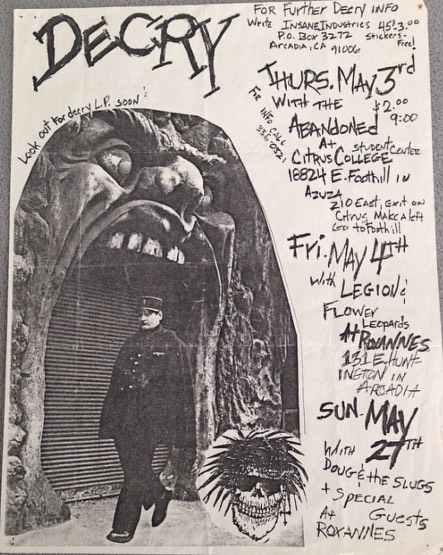 DECRY
FOR FURTHER DECRY INFO
Write INSANE INDUSTRIES 45 $3.00
P.O. BOX 3272 Stickers-
ARCADIA, CA 91006 Free!
Look out for decry L.P. soon!
THURS. MAY 3rd
WITH THE $2.00
ABANDONED 9:00
At STUDENT Center
CITRUS COLLEGE
18824 E. Foothill in
AZUZA
For INFO CALL
210 East, exit on
Citrus, Make a left
Go to Foothill
FRI. MAY 4TH
with LEGION &
FLOWER
Leopards
At ROXANNES
131 E. HUNT-
INGTON IN
ARCADIA
SUN. MAY
27TH
WITH
DOUG & the SLUGS
+ SPECIAL
Guests
At
ROXANNES